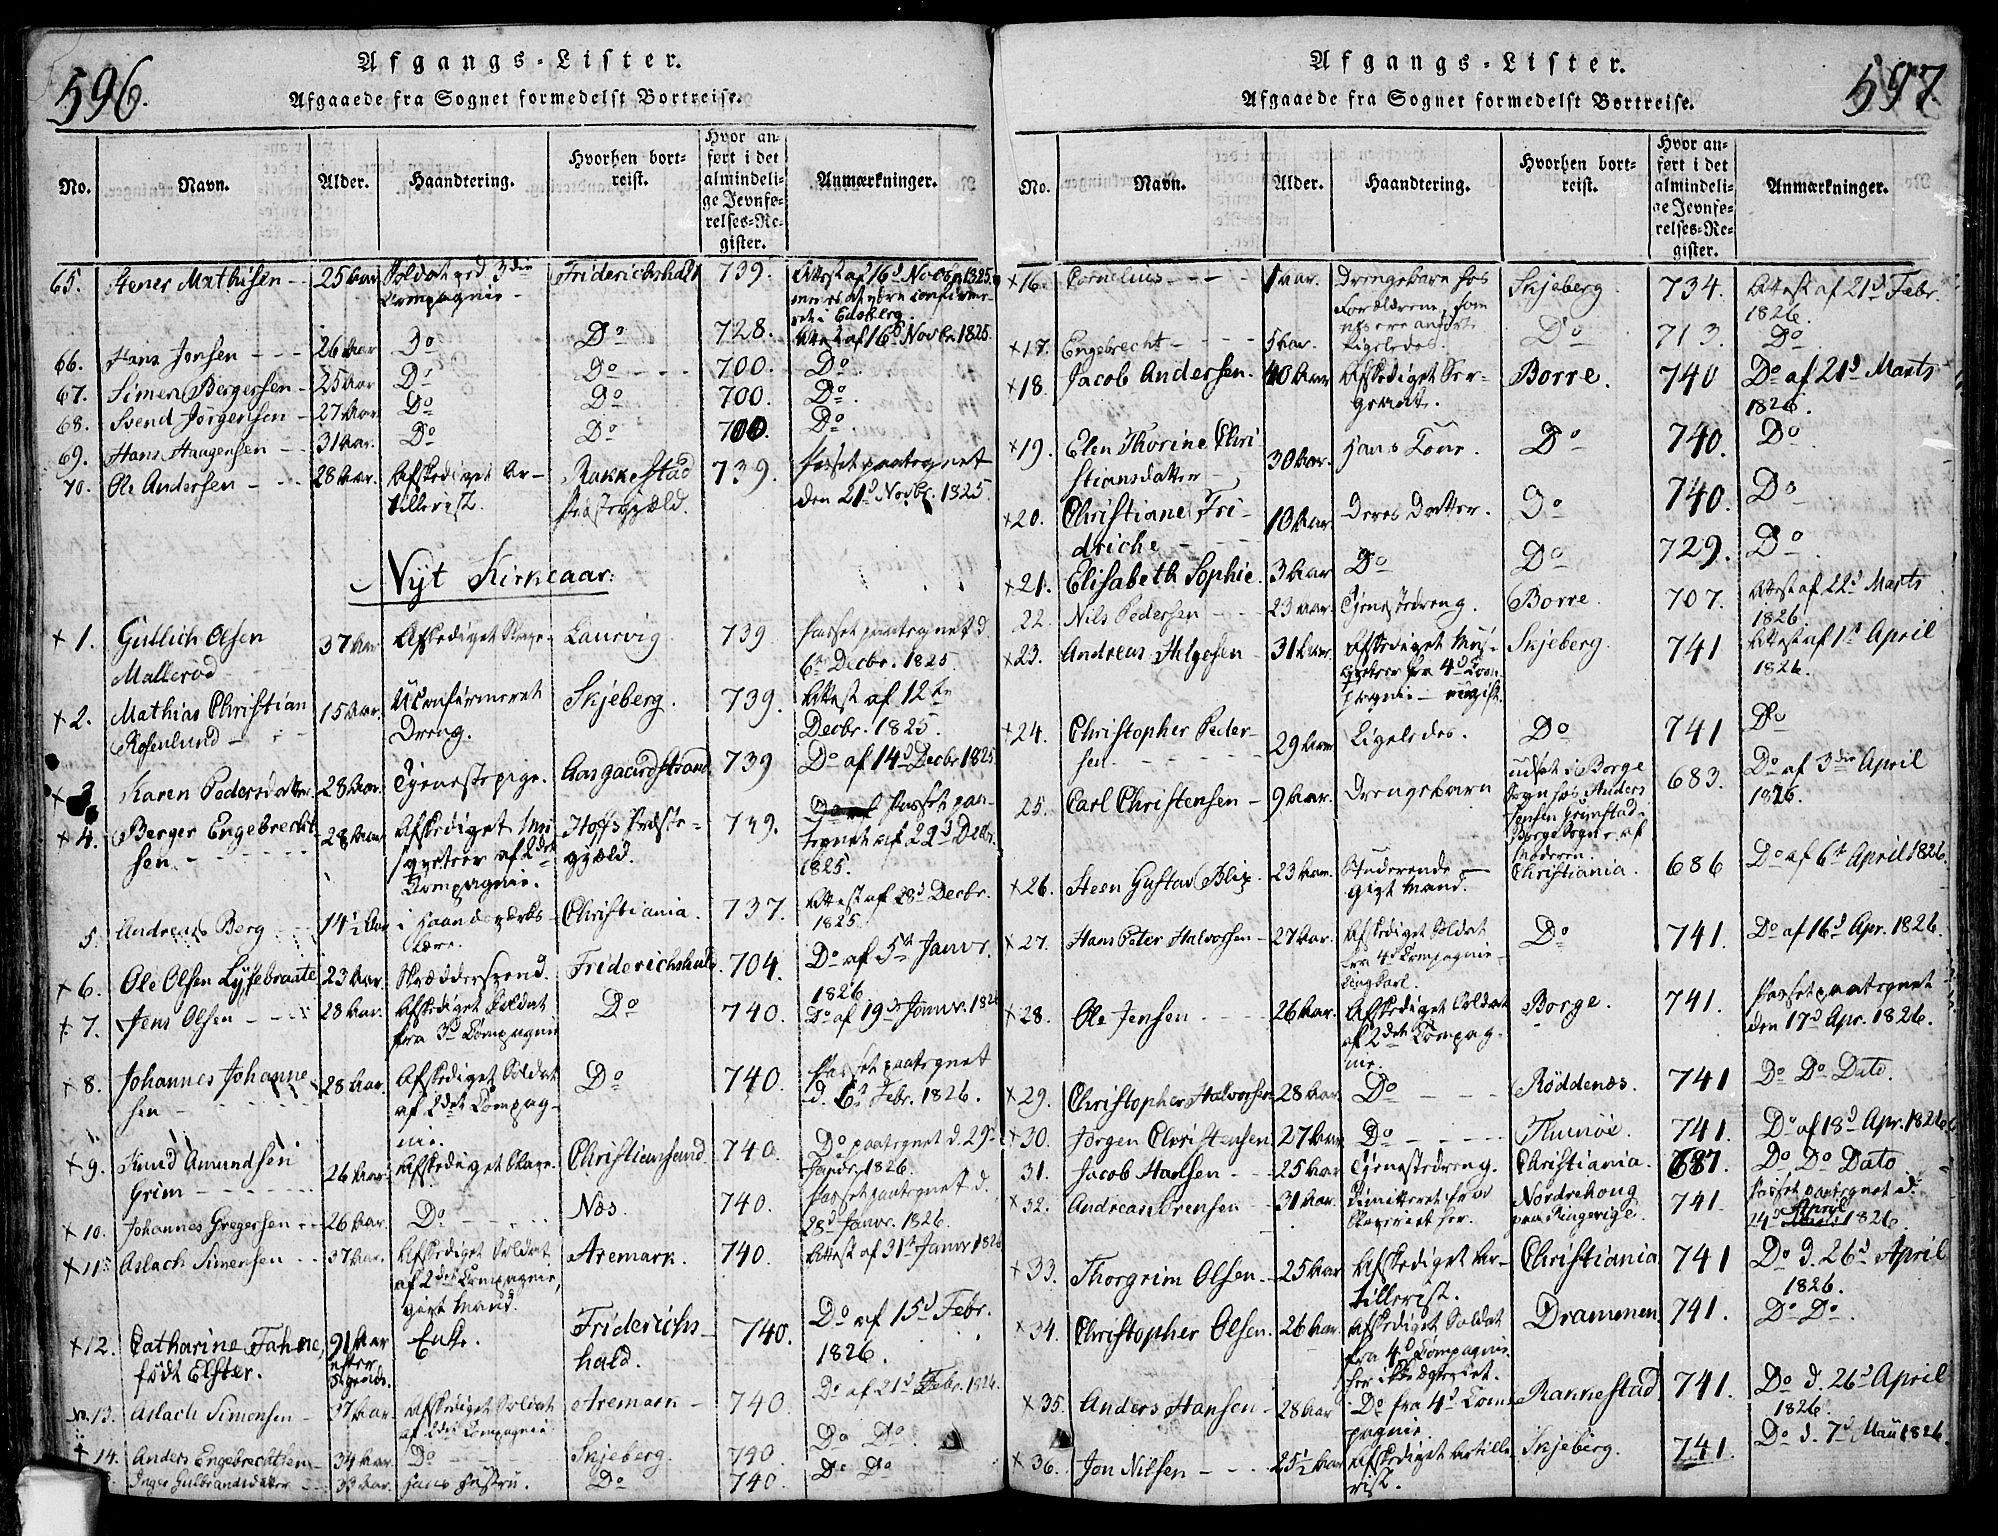 596.
Afgangs-Lister.
Afgaaede fra Sognet formedelst Bortreise.
No. Navn. Alder. Haandtering. Hvorhen bortreist. Hvor anført i det almindelige Jevnførelses-Register. Anmærkninger.
65. Stener Mathisen 25 Aar Soldat ved 3die Compagnie Friderichshald 739. Attest af 16d Novbr 1825
66. Hans Jensen 26 Aar Do Do 728. Attest af 16d Novbr 1825.
67. Simen Bergersen 25 Aar Do Do 700. Do
68. Svend Jörgensen 27 Aar Do Do 700. Do
69. Hans Haagensen 31 Aar. Do Do 700. Do
70. Ole Andersen 28 Aar. Afskediget Artillerist. Rakkestad Præstegjæld. 739. Passet paategnet den 21d Novbr. 1825
Nyt Kirkeaar:
+ 1. Gullich Olsen Mallerød 37 Aar Afskediget Laurvig. 739 Passet paategnet d. 6te Decbr. 1825.
+ 2. Mathias Christian Rosenlund 15 Aar. Uconfirmeret Dreng. Skjeberg. 739. Attest af 12te Decbr. 1825.
+ 3 Karen Pedersdatter 28 Aar. Tjenestepige. Aasgaardstrand 739 Do af 14d Decbr 1825.
+ 4. Berger Engebrechtsen 28 Aar Afskediget af 2det Compagnie. Hofs Præstegjæld. 739. Passet paategnet af 22d Decbr. 1825.
5. Andreas Berg 14½ Aar i Haandværkslære. Christiania. 737. Attest af 28d Decbr. 1825
+ 6. Ole Olsen Lysebraate 23 Aar. Skræddersvend. Friderichshald 704. Do af 5te Janvr. 1826
+ 7. Jens Olsen 28 Aar. Afskediget Soldat fra 3d Compagnie Do 740. Do af 19d Janvr. 1826
+ 8. Johannes Johannesen 28 Aar. Afskediget Soldat af 2det Compagnie. Do 740. Passet paategnet d. 6te Febr. 1826.
+ 9. Knud Amundsen Grim 26 Aar Afskediget Slave. Christiansand 740. Do paategnet d. 29d Janvr. 1826.
+ 10. Johannes Gregersen 26 Aar. Do Næs. 740. Passet paategnet d. 28d Janvr. 1826.
+ 11. Aslach Simensen 37 Aar. Afskediget Soldat af 2det Compagnie, givt Mand. Aremark. 740. Attest af 31te Janvr 1826
+ 12. Catharine Fahne, født Elster. 91 Aar efter Sigende. Enke. Friderichshald. 740. Do af 15d Febr. 1826.
13. Aslach Simensen 37 Aar Afskediget Soldat af 2det Compagnie Aremark 740. Do af 21d Febr. 1826.
+ 14. Anders Engebrechtsen 34 Aar Do Skjeberg. 740 Do Do
Inger Gulbrandsdatter 33 Aar. Hans Hustru. Do 740. Do Do
597.
Afgangs-Lister.
Afgaaede fra Sognet formedelst Bortreise.
No. Navn. Alder. Haandtering. Hvorhen bortreist. Hvor anført i det almindelige Jevnførelses-Register. Anmærkninger.
+ 16. Cornelius 1 Aar. Drengebarn hos Forældrene, som Skjeberg. 734. Attest af 21d Febr. 1826.
+ 17. Engebrecht 5 Aar. Ligeledes. Do 713. Do
+ 18. Jacob Andersen. 40 Aar Afskediget Sergeant. Borre. 740 Do af 21d Marts 1826.
+ 19. Elen Thorine Christiansdatter 30 Aar. Hans Kone. Do 740. Do
+ 20. Christiane Fridriche 10 Aar Deres Datter. Do 740. Do
+ 21. Elisabeth Sophie 3 Aar Do Do 729. Do
22. Nils Pedersen 23 Aar. Tjenestedreng. Borre. 707. Attest af 22d Marts 1826.
+ 23. Andreas Helgesen 31 Aar. Afskediget fra 4d Compagnie ugift. Skjeberg. 741 Attest af 1te April 1826.
+ 24. Christopher Pedersen. 29 Aar Ligeledes. Do 741 Do
25. Carl Christensen 9 Aar. Drengebarn udsat i Borge Sogn hos Anders Jensen Grimstad Borge Sogn af Moderen. 683. Do af 3die April 1826.
+ 26. Steen Gustav Blix. 23 Aar. Studerende givt Mand. Christiania. 686 Do af 6te April 1826.
+ 27. Hans Peter Halvorsen 27 Aar. Afskediget Soldat 4d Compagnie Ungkarl. Do 741. Do af 16d Apr. 1826.
+ 28. Ole Jensen 26 Aar. Afskediget Soldat af 2det Compagnie. Borge. 741. Passet paategnet den 17d Apr. 1826.
+ 29. Christopher Halvorsen 28 Aar Do Röddenæs. 741 Do Do Dato.
+ 30. Jörgen Christensen 27 Aar Do Thunöe. 741. Do af 18d Apr. 1826
31. Jacob Hansen 25 Aar Tjenestedreng. Christiania. 687. Do Do Dato
+ 32. Andreas Örensen 31 Aar. Dimitteret fra Slaveriet her. Nordrehoug paa Ringerige. 741. Passet paategnet d. 24d April 1826.
+ 33. Thorgrim Olsen. 25 Aar Afskediget Artillerist. Christiania 741 Do d. 26d April 1826.
+ 34. Christopher Olsen. 26 Aar Afskediget Soldat fra 4d Compagnie her Drammen 741. Do Do.
+ 35. Anders Hansen 28 Aar Do fra 4d Compagnie. Rannestad 741. Do d. 26d April 1826.
+ 36. Jon Nilsen 25½ Aar Afskediget Artillerist. Skjeberg. 741. Do d. 7d Maii 1826.